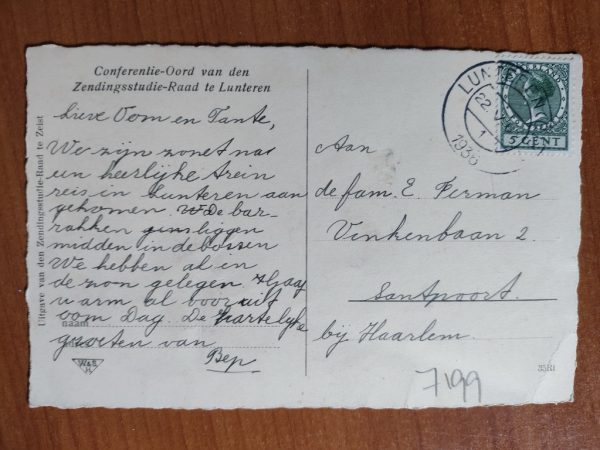 Conferentie-Oord van den
Zendingsstudie-Raad te Lunteren
Uitgave van den Zendingsstudie-Raad te Zeist
Lieve Oom en Tante,
We zijn zonet na
een heerlijke trein
reis in Lunteren aan
gekomen. De bar-
rakken liggen
midden in de bossen
We hebben al in
de zon gelegen
warm al
oom Dag. De hartelijke
naam
groeten van
Bep
W&B
N
LUNTEREN
22
1
1938
5 CENT
Aan
de fam. E. Ferman
Vinkenbaan 2.
Santpoort.
bij Haarlem.
7199